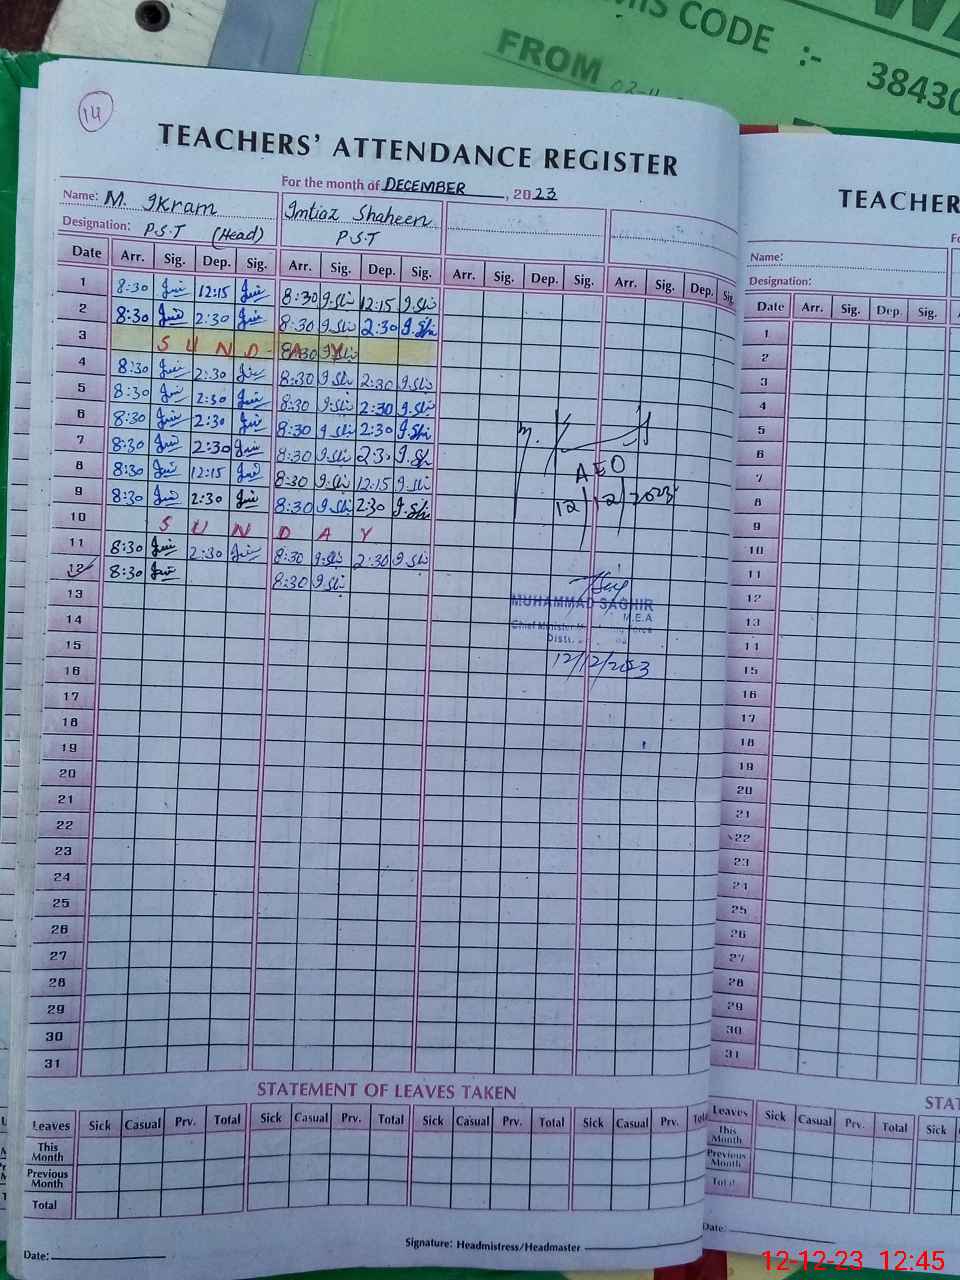 MIS CODE :- 38430
FROM
14
TEACHERS' ATTENDANCE REGISTER
For the month of DECEMBER, 2023
Name: M. Ikram Imtiaz Shaheen
Designation: P.S.T (Head) P.S.T
Date Arr. Sig. Dep. Sig. Arr. Sig. Dep. Sig. Arr. Sig. Dep. Sig. Arr. Sig. Dep. Sig.
1 8:30 12:15 8:30 I.Sh 12:15 I.Sh
2 8:30 2:30 8:30 I.Sh 2:30 I.Sh
3 S U N D A Y 8:30 I.Sh
4 8:30 2:30 8:30 I.Sh 2:30 I.Sh
5 8:30 2:30 8:30 I.Sh 2:30 I.Sh
6 8:30 2:30 8:30 I.Sh 2:30 I.Sh
7 8:30 2:30 8:30 I.Sh 2:3. I.Sh
8 8:30 12:15 8:30 I.Sh 12:15 I.Sh
9 8:30 2:30 8:30 I.Sh 2:30 I.Sh
10 S U N D A Y
11 8:30 2:30 8:30 I.Sh 2:30 I.Sh
12 8:30 8:30 I.Sh
13
14
15
16
17
18
19
20
21
22
23
24
25
26
27
28
29
30
31
AEO
12/12/2023
MUHAMMAD SAGHIR
M.E.A
Chief Minister
Distt.
12/12/2023
STATEMENT OF LEAVES TAKEN
Leaves Sick Casual Prv. Total Sick Casual Prv. Total Sick Casual Prv. Total Sick Casual Prv.
This Month
Previous Month
Total
Signature: Headmistress/Headmaster
Date:
TEACHER
Name:
Designation:
Date Arr. Sig. Dep. Sig.
1
2
3
4
5
6
7
8
9
10
11
12
13
14
15
16
17
18
19
20
21
22
23
24
25
26
27
28
29
30
31
STA
Leaves Sick Casual Prv. Total Sick
This Month
Previous Month
Total
Date:
12-12-23 12:45